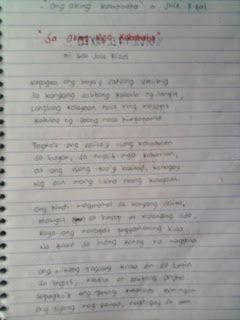 Ang aking kababata" ni Jose Rizal
"Sa Aking Mga Kababata"
ni Jose Rizal
Kapagka ang baya'y sadyang umiibig
Sa kanyang salitang kaloob ng langit,
Sanglang kalayaan nasa ring masapit
Katulad ng ibong nasa himpapawid.
Pagka't ang salita'y isang kahatulan
Sa bayan, sa nayo't mga kaharian,
At ang isang tao'y katulad, kabagay
Ng alin mang likha noong kalayaan.
Ang hindi magmahal sa kanyang salita,
Mahigit sa hayop at malansang isda,
Kaya ang marapat pagyamaning kusa
Na tulad sa inang tunay na nagpala.
Ang wikang Tagalog tulad din sa Latin
Sa Ingles, Kastila at salitang anghel,
Sapagka't ang Poong maalam tumingin
Ang siyang naggawad, nagbigay sa atin.